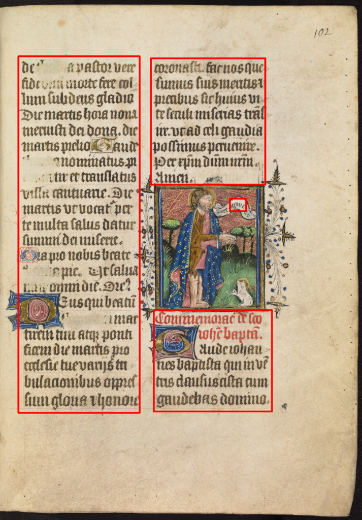 102
de a pastor vere
fide morte fere col
lum subdens gladio
Die martis hora nona
meruisti dei dona. die
martis prelio Gaude
nominatus pi
tur et translatus
visu cantuarie. Die
martis ut vocat' per
te multa salus datur
summi dei miserere.
Ora pro nobis beate
pie. Ut salua
omni die. Or'
Deus qui beatum
mar
tirem tuum atque ponti
ficem die martis pro
ecclesie tue varijs tri
bulacionibus oppres
sum gloria et honore
coronasti. fac nos que
sumus suis meritis et
precibus sic huius vi
te seculi miserias tran
ire. ut ad celi gaudia
possimus peruenire.
Per xpm dnm nrm.
Amen.
Commemorac' de sco
iohe bapta.
Gaude iohan
nes baptista qui in ve
tris clausus cista cum
gaudebas domino.